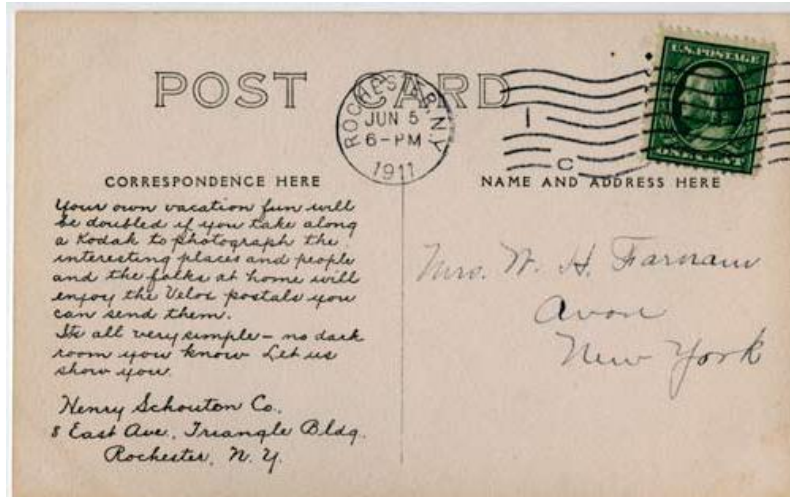 POST CARD
ROCHESTER, N.Y.
JUN 5
6-PM
1911
1
C
U.S. POSTAGE
ONE CENT
CORRESPONDENCE HERE
Your own vacation fun will
be doubled if you take along
a Kodak to photograph the
interesting places and people
and the folks at home will
enjoy the Velox postals you
can send them.
Its all very simple - no dark
room you know Let us
show you.
Henry Schouton Co.
8 East Ave., Triangle Bldg.
Rochester, N.Y.
NAME AND ADDRESS HERE
Mrs. W. H. Farnam
Avon
New York